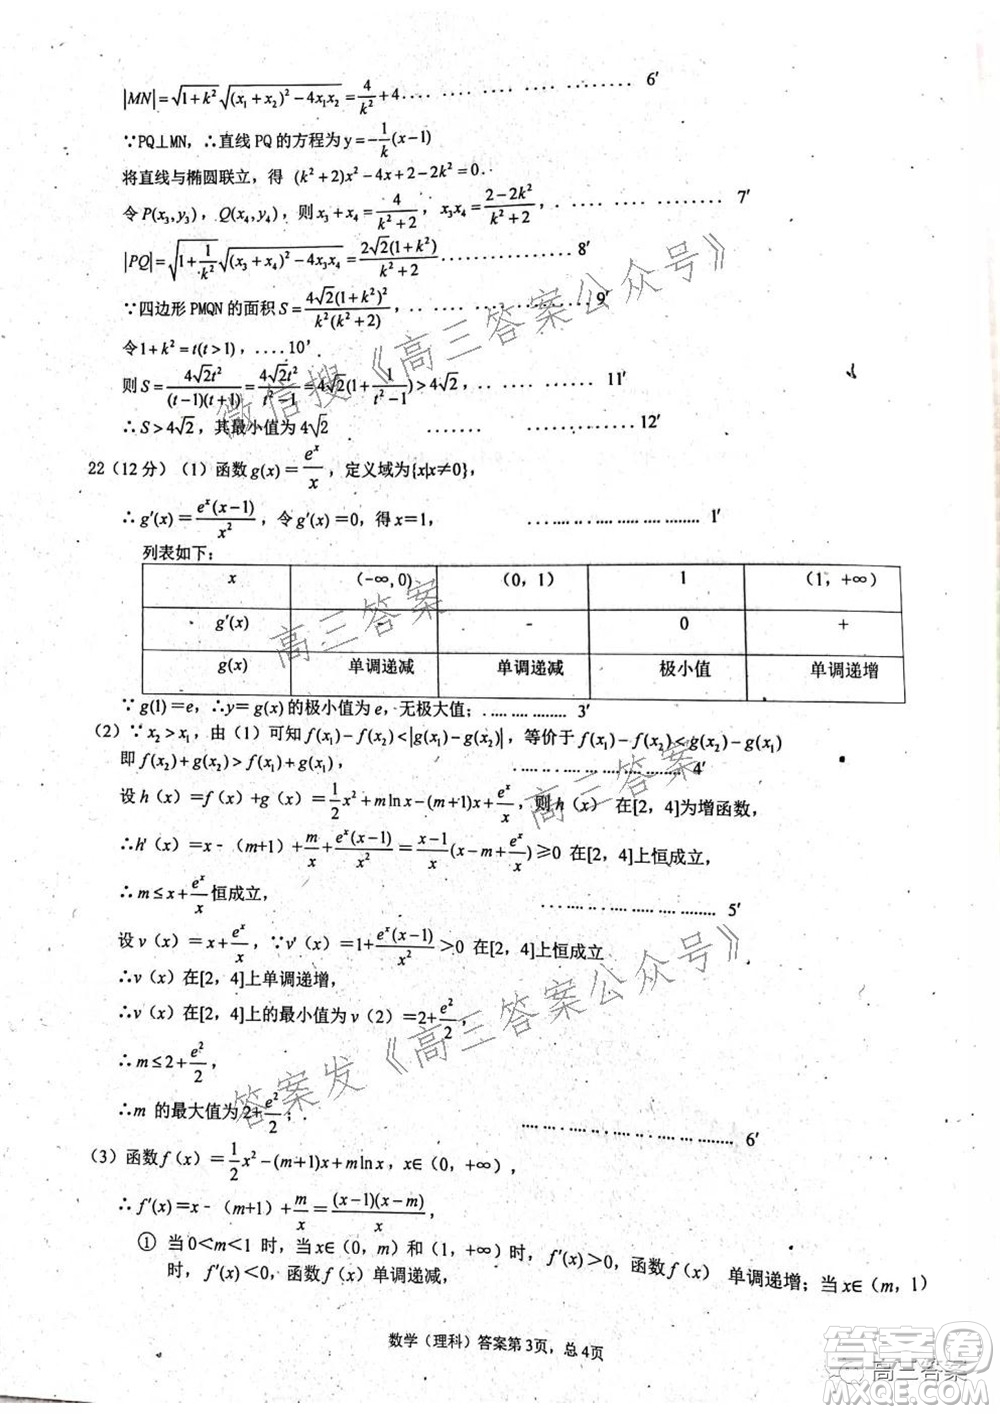 |MN|=√(1+k²)√((x₁+x₂)²−4x₁x₂)=4/k²+4.................. 6′
∵PQ⊥MN，∴直线 PQ 的方程为 y=−1/k(x−1)
将直线与椭圆联立，得 (k²+2)x²−4x+2−2k²=0.
令P(x₃,y₃)，Q(x₄,y₄)，则 x₃+x₄=4/(k²+2)，x₃x₄=(2−2k²)/(k²+2)，.................. 7′
|PQ|=√(1+1/k²)√((x₃+x₄)²−4x₃x₄)=2√2(1+k²)/(k²+2) .................. 8′
∵四边形 PMQN 的面积 S=4√2(1+k²)²/(k²(k²+2))，.................. 9′
令1+k²=t(t>1)，....10′
则 S=4√2t²/((t−1)(t+1))=4√2t²/(t²−1)=4√2(1+1/(t²−1))>4√2，.................. 11′
∴S>4√2，其最小值为 4√2 .................. 12′
22（12 分）（1）函数 g(x)=eˣ/x，定义域为{x|x≠0}，
∴g′(x)=eˣ(x−1)/x²，令 g′(x)=0，得 x=1， .................. 1′
列表如下：
x （-∞，0） （0，1） 1 （1，+∞）
g′(x) - - 0 +
g(x) 单调递减 单调递减 极小值 单调递增
∵g(1)=e，∴y=g(x)的极小值为 e，无极大值；.................. 3′
（2）∵x₂>x₁，由（1）可知 f(x₁)−f(x₂)<|g(x₁)−g(x₂)|，等价于 f(x₁)−f(x₂)<g(x₂)−g(x₁)
即 f(x₂)+g(x₂)>f(x₁)+g(x₁)， .................. 4′
设 h（x）=f（x）+g（x）=1/2x²+mlnx−(m+1)x+eˣ/x，则 h（x）在[2，4]为增函数，
∴h′（x）=x-（m+1）+m/x+eˣ(x−1)/x²=(x−1)/x(x−m+eˣ/x)≥0 在[2，4]上恒成立，
∴m≤x+eˣ/x恒成立， .................. 5′
设 v（x）=x+eˣ/x，∵v′（x）=1+eˣ(x−1)/x²>0 在[2，4]上恒成立
∴v（x）在[2，4]上单调递增，
∴v（x）在[2，4]上的最小值为 v（2）=2+e²/2，
∴m≤2+e²/2，
∴m 的最大值为 2+e²/2； .................. 6′
（3）函数 f（x）=1/2x²−(m+1)x+mlnx，x∈（0，+∞），
∴f′(x)=x-（m+1）+m/x=(x−1)(x−m)/x，
① 当 0<m<1 时，当 x∈（0，m）和（1，+∞）时，f′(x)>0，函数 f（x） 单调递增；当 x∈（m，1）
时，f′(x)<0，函数 f（x）单调递减，
数学（理科）答案第 3页，总 4页
微信搜《高三答案公众号》
高三答案
高三答案
答案发《高三答案公众号》
高三答案
答案圈
MXQE.COM